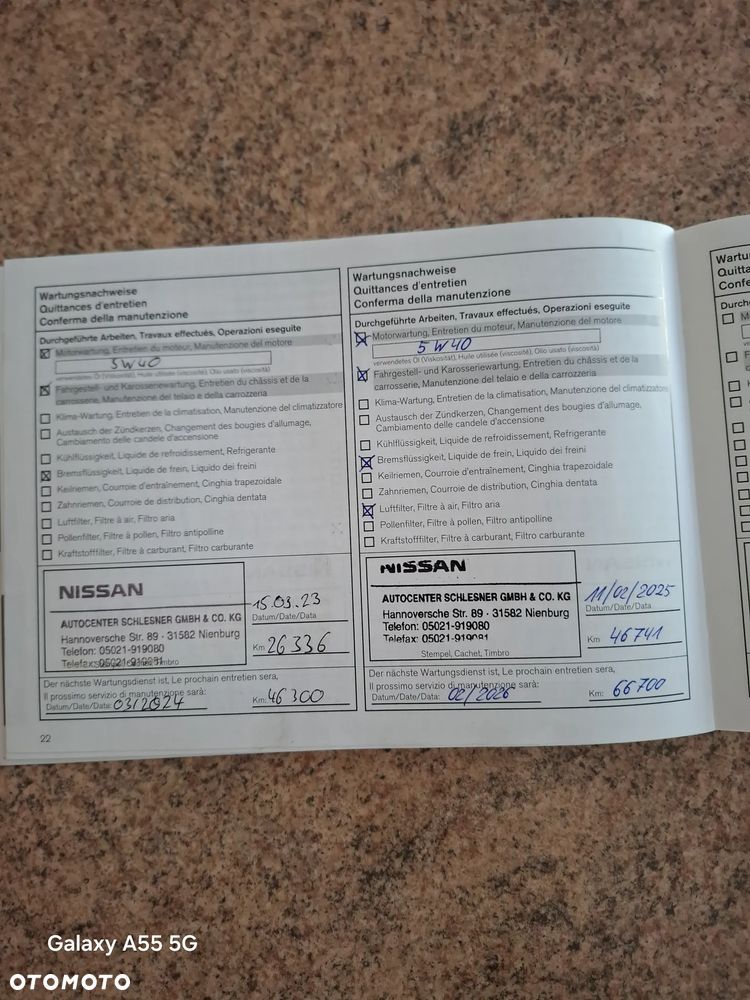 Wartungsnachweise
Quittances d'entretien
Conferma della manutenzione
Durchgeführte Arbeiten, Travaux effectués, Operazioni eseguite
Motorwartung, Entretien du moteur, Manutenzione del motore
5W40
verwendetes Öl (Viskosität), Huile utilisée (viscosité), Olio usato (viscosità)
Fahrgestell- und Karosseriewartung, Entretien du châssis et de la
carrosserie, Manutenzione del telaio e della carrozzeria
Klima-Wartung, Entretien de la climatisation, Manutenzione del climatizzatore
Austausch der Zündkerzen, Changement des bougies d'allumage,
Cambiamento delle candele d'accensione
Kühlflüssigkeit, Liquide de refroidissement, Refrigerante
Bremsflüssigkeit, Liquide de frein, Liquido dei freini
Keilriemen, Courroie d'entraînement, Cinghia trapezoidale
Zahnriemen, Courroie de distribution, Cinghia dentata
Luftfilter, Filtre à air, Filtro aria
Pollenfilter, Filtre à pollen, Filtro antipolline
Kraftstofffilter, Filtre à carburant, Filtro carburante
NISSAN
AUTOCENTER SCHLESNER GMBH & CO. KG
Hannoversche Str. 89 · 31582 Nienburg
Telefon: 05021-919080
Telefax: 05021-919081
15.03.23
Datum/Date/Data
Km 26336
Der nächste Wartungsdienst ist, Le prochain entretien sera,
Il prossimo servizio di manutenzione sarà:
Datum/Date/Data: 03/2024
Km: 46300
22
Wartungsnachweise
Quittances d'entretien
Conferma della manutenzione
Durchgeführte Arbeiten, Travaux effectués, Operazioni eseguite
Motorwartung, Entretien du moteur, Manutenzione del motore
5W40
verwendetes Öl (Viskosität), Huile utilisée (viscosité), Olio usato (viscosità)
Fahrgestell- und Karosseriewartung, Entretien du châssis et de la
carrosserie, Manutenzione del telaio e della carrozzeria
Klima-Wartung, Entretien de la climatisation, Manutenzione del climatizzatore
Austausch der Zündkerzen, Changement des bougies d'allumage,
Cambiamento delle candele d'accensione
Kühlflüssigkeit, Liquide de refroidissement, Refrigerante
Bremsflüssigkeit, Liquide de frein, Liquido dei freini
Keilriemen, Courroie d'entraînement, Cinghia trapezoidale
Zahnriemen, Courroie de distribution, Cinghia dentata
Luftfilter, Filtre à air, Filtro aria
Pollenfilter, Filtre à pollen, Filtro antipolline
Kraftstofffilter, Filtre à carburant, Filtro carburante
NISSAN
AUTOCENTER SCHLESNER GMBH & CO. KG
Hannoversche Str. 89 · 31582 Nienburg
Telefon: 05021-919080
Telefax: 05021-919081
Stempel, Cachet, Timbro
11/02/2025
Datum/Date/Data
Km 46741
Der nächste Wartungsdienst ist, Le prochain entretien sera,
Il prossimo servizio di manutenzione sarà:
Datum/Date/Data: 02/2026
Km: 66700
Galaxy A55 5G
OTOMOTO